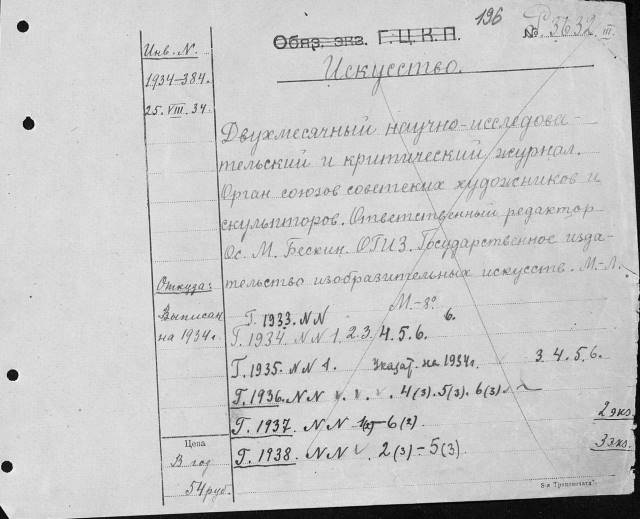 196
Обяз. экз. Г.Ц.К.П.
№ Р 3632 III.
Искусство.
Инв. N.
1934-384.
25.VIII.34.
Двухмесячный научно-исследова-
тельский и критический журнал.
Орган союзов советских художников и
скульпторов. Ответственный редактор
Ос. М. Бескин. ОГИЗ. Государственное изда-
тельство изобразительных искусств. М.-Л.
Откуда:
Выписан
на 1934г.
М.-8º
Г. 1933. NN 6.
Г. 1934. NN 1. 2. 3. 4. 5. 6.
Г. 1935. NN 1. Указат. на 1934г. 3. 4. 5. 6.
Г. 1936. NN 4(3). 5(3). 6(3).
Г. 1937. NN 6(2) 2 экз.
Г. 1938. NN 2(3) - 5(3) 3 экз.
Цена
В год
54 руб.